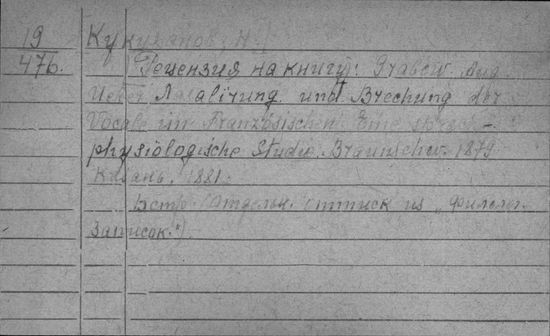 19
476.
Кукуранов, Н.
Рецензия на книгу: Grabow. Aug
Ueber Nasalirung und Brechung der
Vocale im Französischen. Eine sprach-
physiologische Studie. Braunschw. 1879
Казань, 1881.
стр. (Отдельн. оттиск из „Филолог.
Записок.")